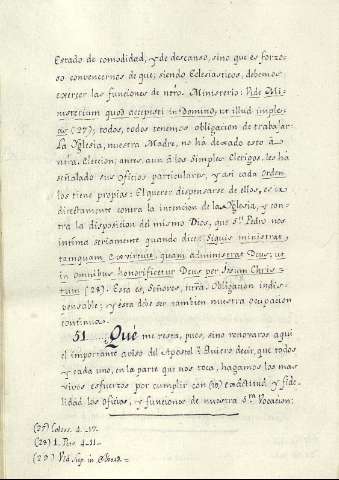 Estado de comodidad, y de descanso, sino que es forzo-
so convencernos de que, siendo Eclesiasticos, debemos
exercer las funciones de ntro. Ministerio: Vide Mi-
nisterium quod accepisti in Domino, ut illud imple-
as (27); todos, todos tenemos obligacion de trabajar.
La Yglesia, nuestra Madre, no ha dexado esto à
ntra. Eleccion; antes, aun à los simples Clerigos, les ha
señalado sus oficios particulares, y asi cada orden
los tiene propios: El querer dispensarse de ellos, es ir
directamente contra la intencion de la Yglesia, y con-
tra la disposicion del mismo Dios, que Sn. Pedro nos
intima seriamente quando dice: Siquis ministrat,
tamquam ex virtute, quam administrat Deus; ut
in omnibus honorificetur Deus per Jesum Chris-
tum (28). Esta es, Señores, ntra. Obligacion indis-
pensable; y esta debe ser tambien nuestra ocupacion
continua.
51 Qué me resta, pues, sino renovaros aqui
el importante aviso del Apostol? Quiero decir, que todos
y cada uno, en la parte que nos toca, hagamos los mas
vivos esfuerzos por cumplir con exactitud, y fide-
lidad los oficios, y funciones de nuestra Sta. Vocacion:
(27) Colos. 4. 17.
(28) 1. Petr. 4. 11.
(29) Vid. Sup. in